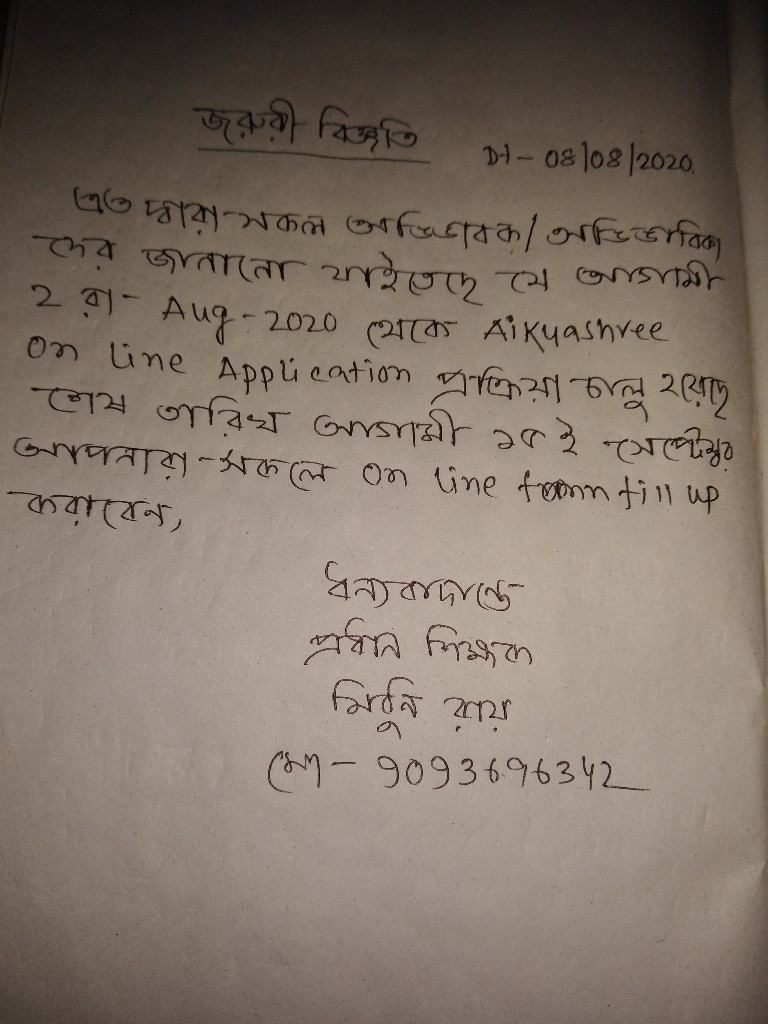 জরুরী বিজ্ঞপ্তি
Dt - 08/08/2020.
এতদ্বারা সকল অভিভাবক/অভিভাবিকা
দের জানানো যাইতেছে যে আগামী
২ রা - Aug - 2020 থেকে Aikyashree
On line Application প্রক্রিয়া চালু হয়েছে
শেষ তারিখ আগামী ১৫ ই সেপ্টেম্বর
আপনারা সকলে on line form fill up
করাবেন,
ধন্যবাদান্তে
প্রধান শিক্ষক
রায়
মো - 9093696342